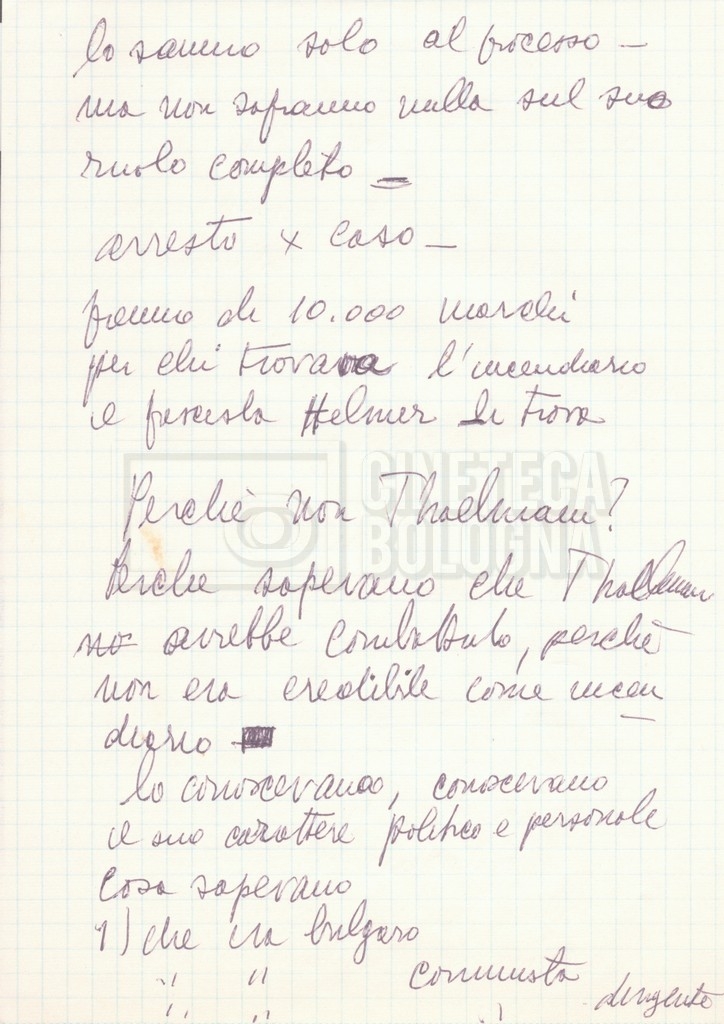 lo sanno solo al processo -
ma non sapranno nulla sul suo
ruolo completo -
arresto x caso -
premio di 10.000 marchi
per chi trovava l'incendiario
e fascista Helmer li trova
CINETECA
BOLOGNA
Perchè non Thaelmann?
Perche sapevano che Thaelmann
no avrebbe combattuto, perchè
non era credibile come incen
diario
lo conoscevano, conoscevano
il suo carattere politico e personale
Cosa sapevano
1) che era bulgaro
" " comunista
" " " dirigente